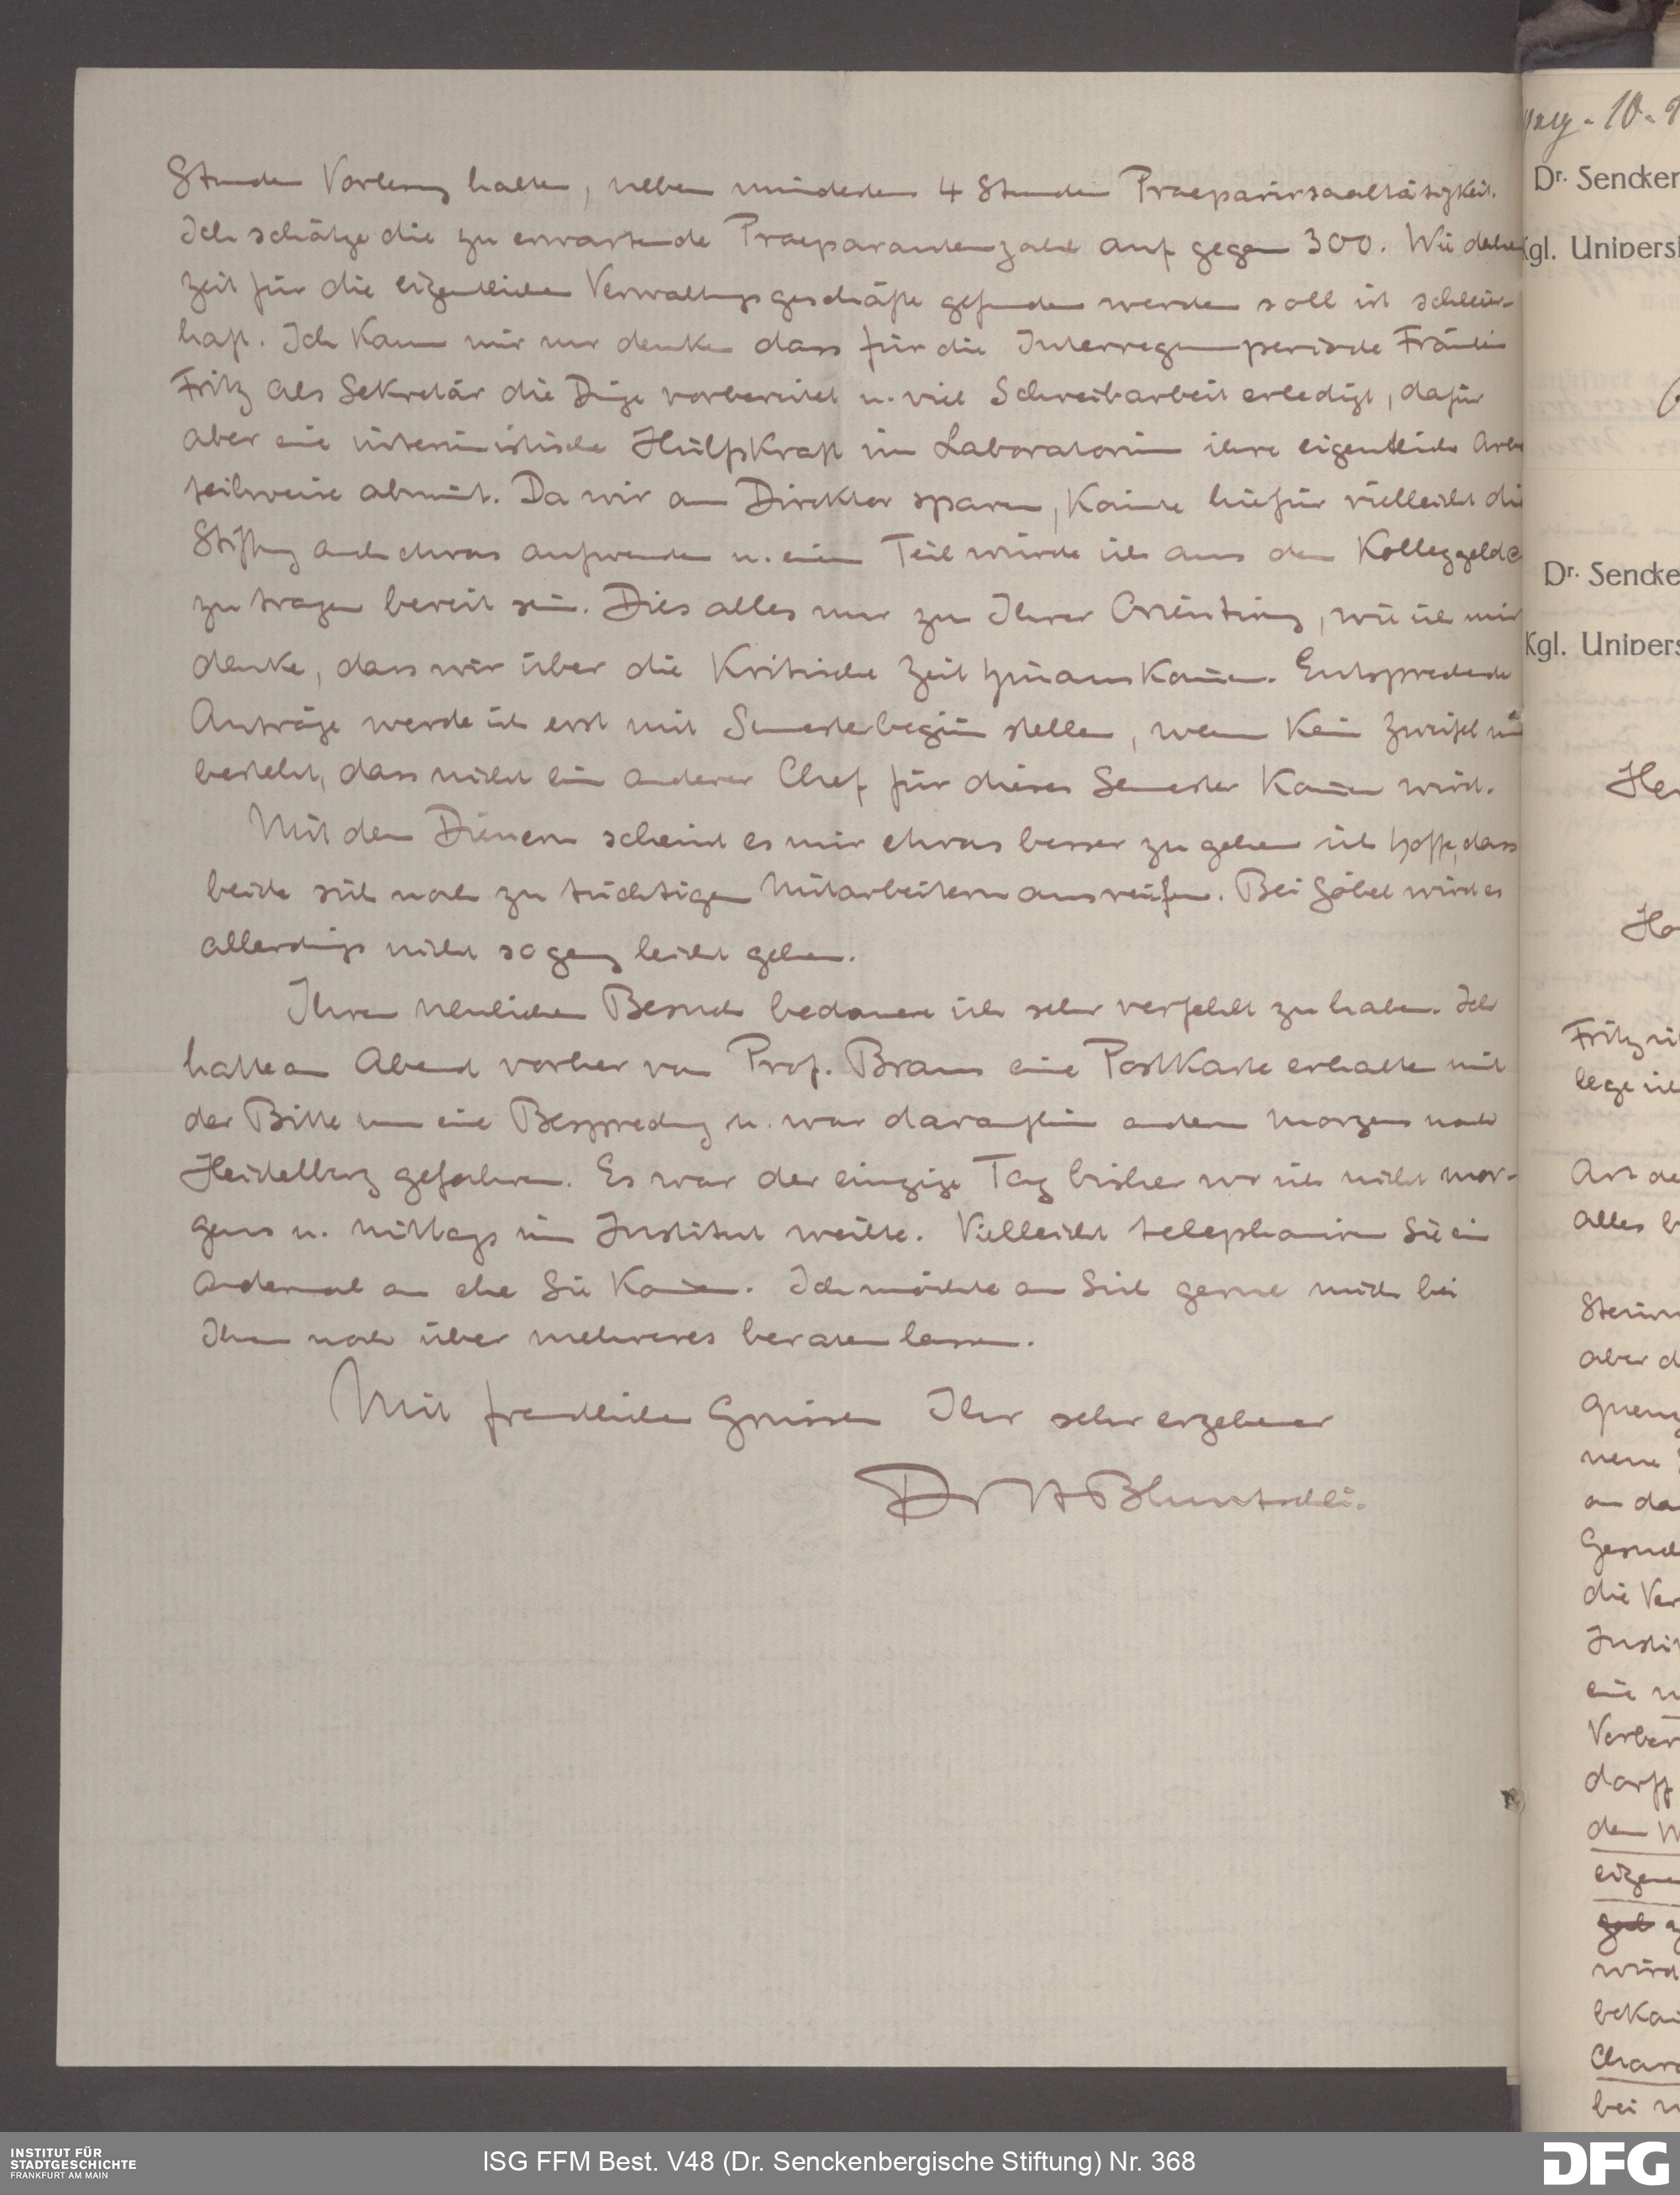 Stunden Vorlesung halten, neben mindestens 4 Stunden Praeparirsaaltätigkeit.
Ich schätze die zu erwartende Praeparantenzahl auf gegen 300. Wie daher
Zeit für die eigentlichen Verwaltungsgeschäfte gefunden werden soll ist schleier-
haft. Ich kann mir nur denken dass für die Interregnumperiode Fräulein
Fritz als Sekretär die Dinge vorbereitet u. viel Schreibarbeit erledigt, dafür
aber eine interimistische Hülfskraft im Laboratorium ihre eigentliche Arbeit
teilweise abnimt. Da wir am Direktor sparen, könnte hiefür vielleicht die
Stiftung auch etwas aufwenden u. einen Teil würde ich aus dem Kolleggelde
zu tragen bereit sein. Dies alles nur zu Ihrer Orientirung, wie ich mir
denke, dass wir über die kritische Zeit hinauskom̄en. Entsprechende
Anträge werde ich erst mit Semesterbegin̄ stellen, wenn kein Zweifel mehr
besteht, dass nicht ein anderer Chef für dieses Semester kom̄en wird.
Mit den Dienern scheint es mir etwas besser zu gehen ich hoffe, dass
beide sich noch zu tüchtigen Mitarbeitern ausreifen. Bei Göbel wird es
allerdings nicht so ganz leicht gehen.
Ihren neulichen Besuch bedauere ich sehr verfehlt zu haben. Ich
hatte am Abend vorher von Prof. Braus eine Postkarte erhalten mit
der Bitte um eine Besprechung u. war daraufhin andern Morgens nach
Heidelberg gefahren. Es war der einzige Tag bisher wo ich nicht mor-
gens u. mittags im Institut weilte. Vielleicht telephoniren Sie ein
andermal an ehe Sie kom̄en. Ich möchte an sich gerne mich bei
Ihnen noch über mehreres beraten lassen.
Mit freundlichen Grüssen Ihr sehr ergebener
Dr H Bluntschli.
10.
Dr. Sencken
Kgl. Univers
Dr. Sencke
Kgl. Univers
Fritz
lege
alles
aber d
neue
an da
die Ver
eine
darff
wird
bei
INSTITUT FÜR
STADTGESCHICHTE
FRANKFURT AM MAIN
ISG FFM Best. V48 (Dr. Senckenbergische Stiftung) Nr. 368
DFG